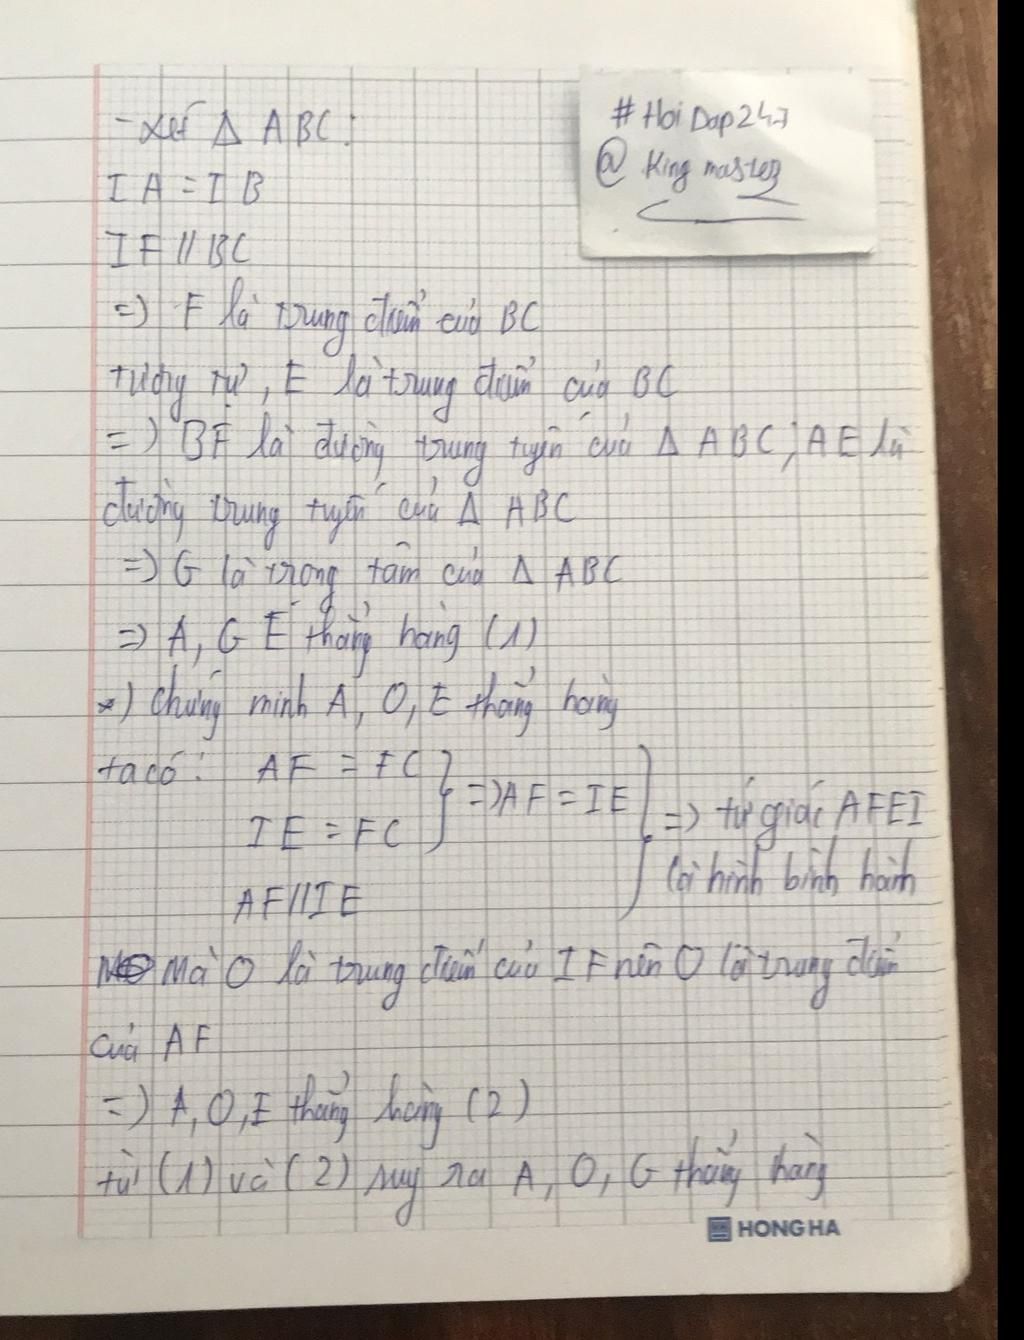 - Xét Δ ABC:
IA = IB
IF // BC
=) F là trung điểm của BC
tương tự, E là trung điểm của BC
=) BF là đường trung tuyến của Δ ABC; AE là
đường trung tuyến của Δ ABC
=) G là trọng tâm của Δ ABC
=) A, G E thẳng hàng (1)
*) Chứng minh A, O, E thẳng hàng
ta có: AF = FC
IE = FC
=) AF = IE
AF // IE
=) tứ giác AFEI
là hình bình hành
Mà O là trung điểm của IF nên O là trung điểm
của AF
=) A, O, E thẳng hàng (2)
từ (1) và (2) suy ra A, O, G thẳng hàng
#HoiDap247
@ King master
HONG HA